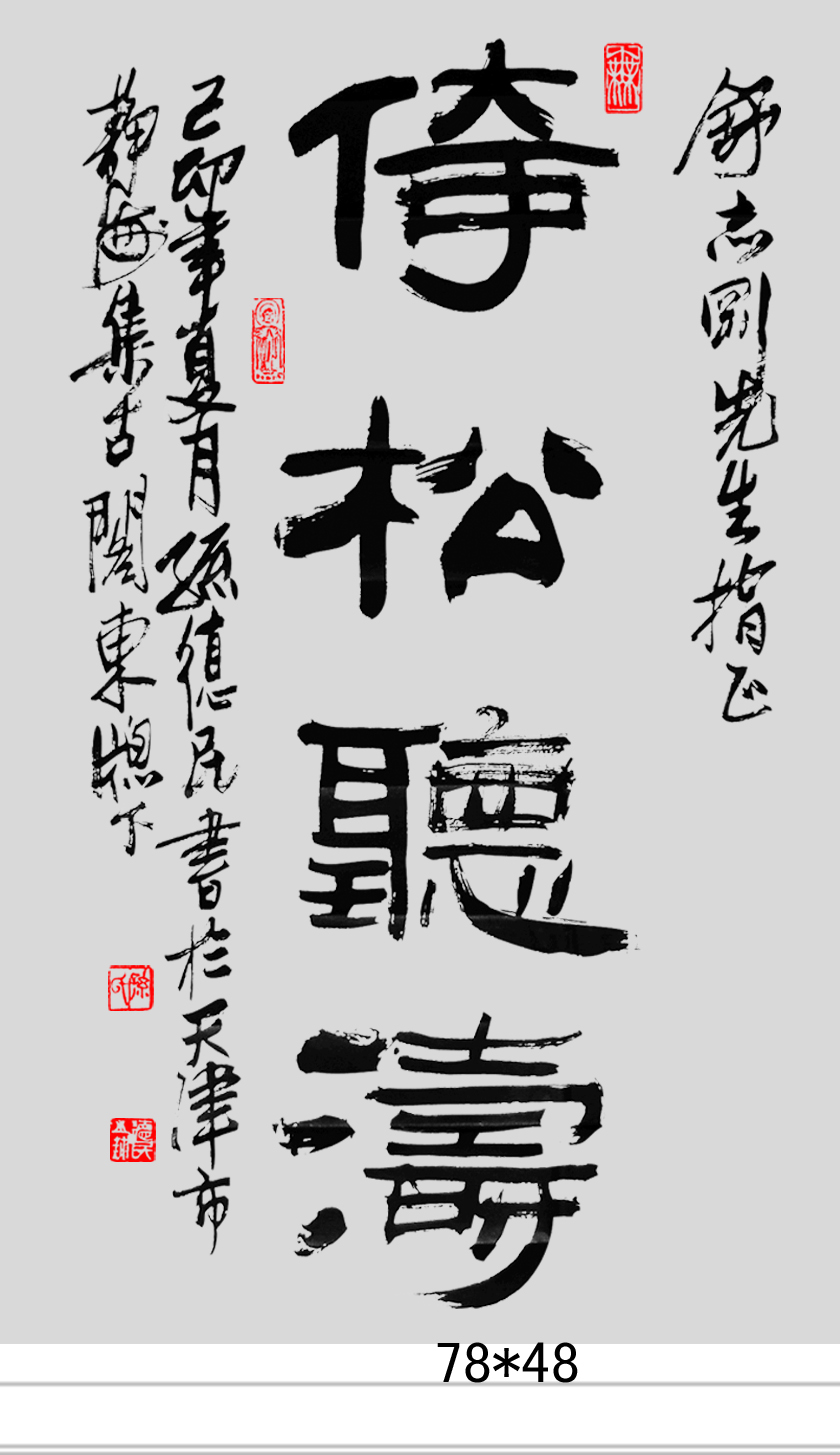 舒志剛先生指正
倚松聽濤
己卯年夏月孫德民書於天津市
靜海集古閣東窗下
78*48